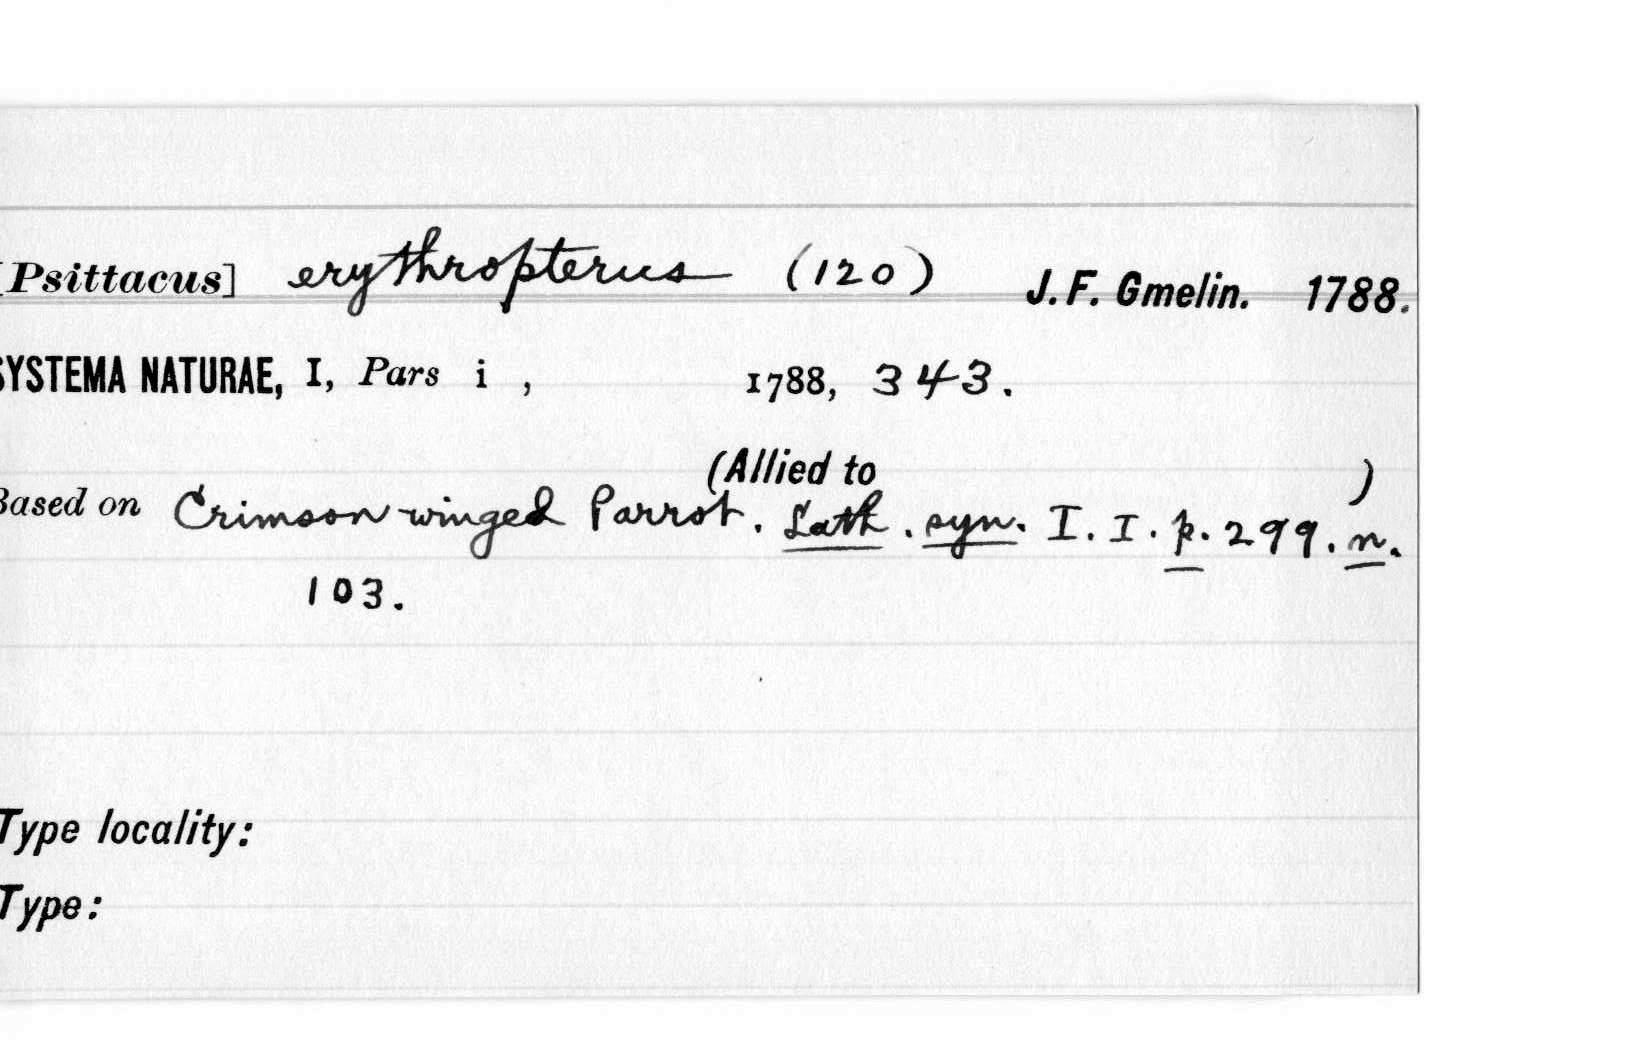 [Psittacus] erythropterus (120) J. F. Gmelin. 1788.
SYSTEMA NATURAE, I, Pars i , 1788, 343.
(Allied to )
Based on Crimson-winged Parrot. Lath. syn. I. I. p. 299. n.
103.
Type locality:
Type: